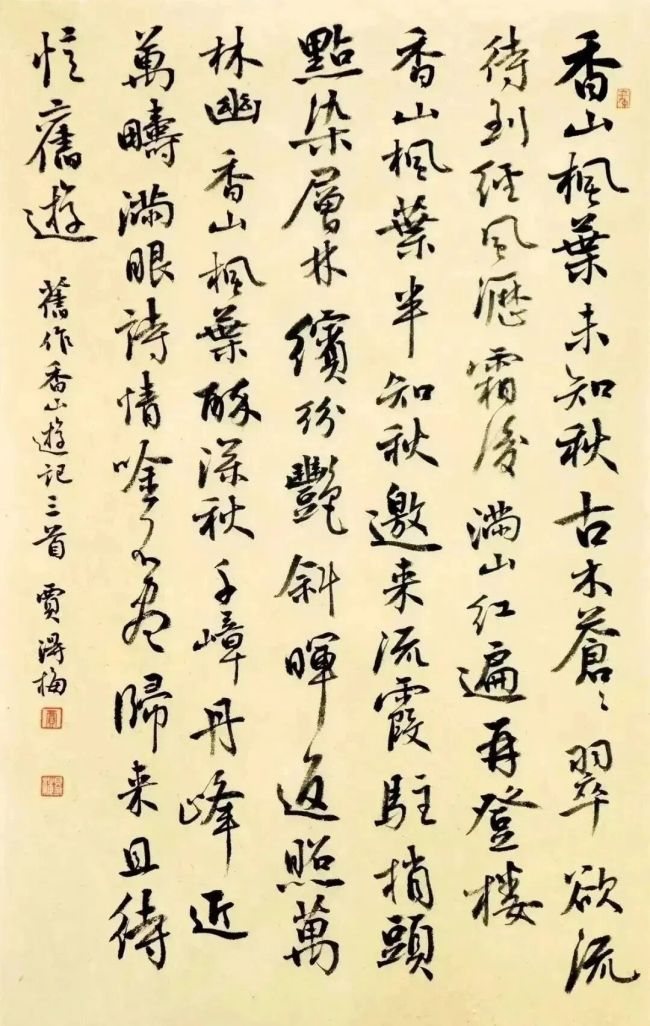 香山楓葉未知秋古木蒼〻翠欲流
待到經風瀝霜後滿山紅遍再登樓
香山楓葉半知秋邀来流霞駐梢頭
點染層林繽紛艷斜暉返照萬
林幽香山楓葉酥深秋千嶂丹峰近
萬疇滿眼詩情唫不盡歸来且待
憶舊遊
舊作香山遊記三首 賈得梅